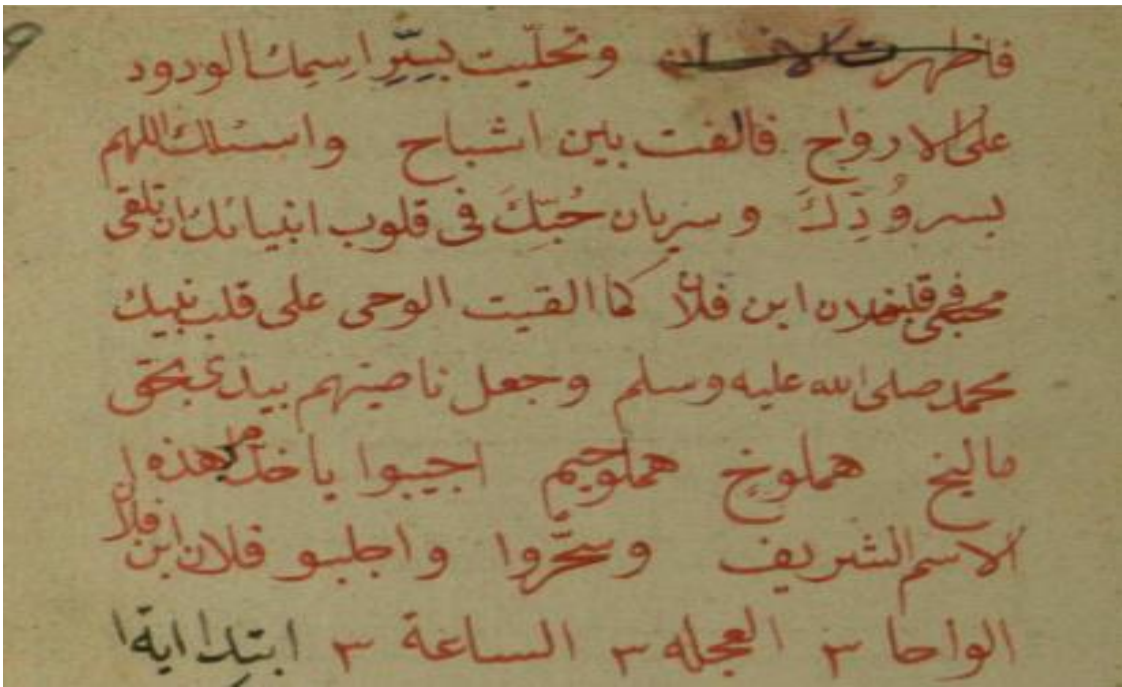 فاظهرت الانسان وتحليت بسِرِّ اسمك الودود
على الارواح فالفت بين اشباح واسئلك اللهم
بسر وُدِّكَ وسريان حُبِّكَ فى قلوب انبيائك ان تلقى
محبتى فى قلب فلان ابن فلان كما القيت الوحى على قلب نبيك
محمد صلى الله عليه وسلم وجعل ناصيتهم بيدى بحق
ماليخ هملوخ هملوحيم اجيبوا ياخدام هذه
الاسم الشريف وسخّروا واجلبو فلان ابن فلان
الواحا ٣ العجله ٣ الساعة ٣ ابتدا اية